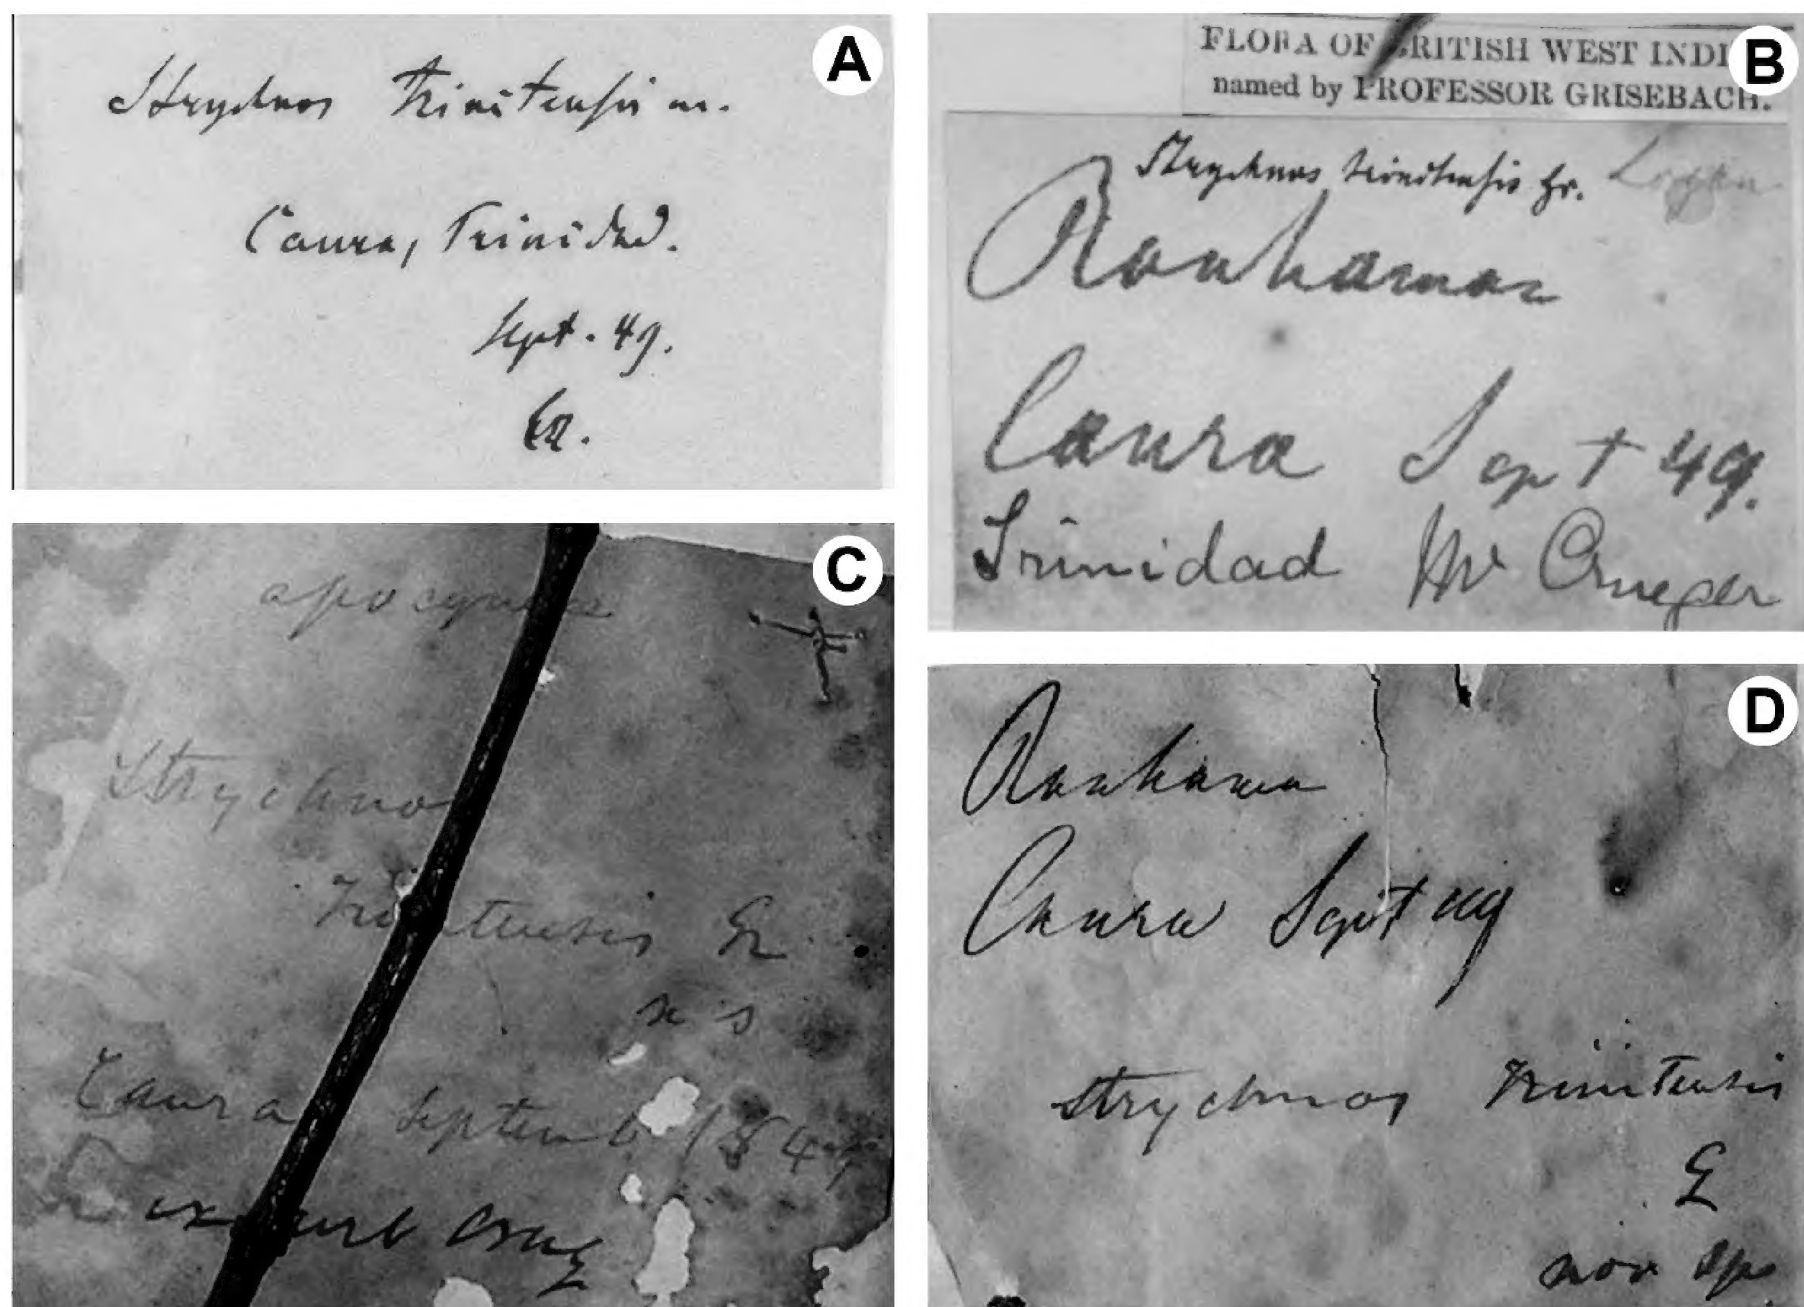 A
Strychnos trinitensis m.
Caura, Trinidad.
Sept. 49.
B
FLORA OF BRITISH WEST INDI
named by PROFESSOR GRISEBACH.
Strychnos trinitensis Gr.
Rouhamon
Caura Sept 49.
Trinidad Mr Crueger
C
apocyneae
Strychnos
Trinitensis Gr
n s
Caura Septemb 1849
ex herb Crug
D
Rouhamon
Caura Sept 49
Strychnos Trinitensis
G
nov sps